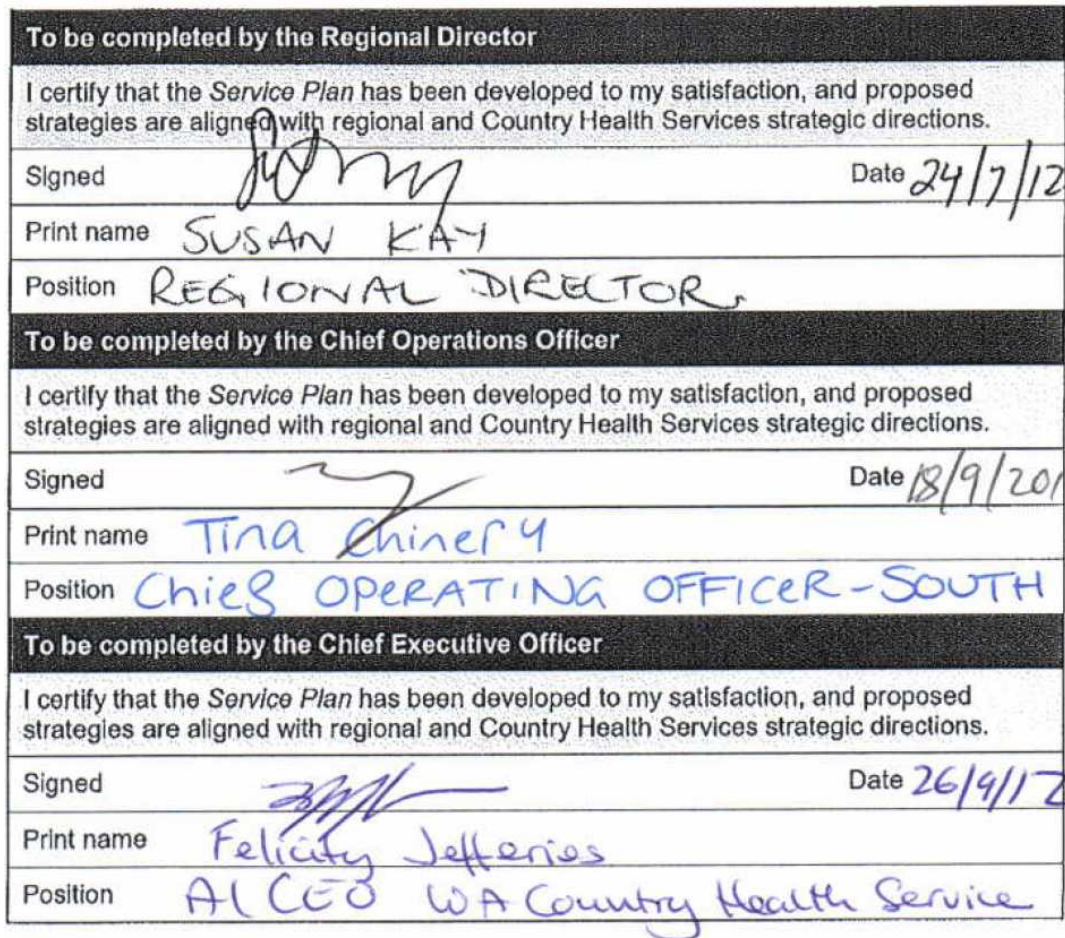 To be completed by the Regional Director
I certify that the Service Plan has been developed to my satisfaction, and proposed
strategies are aligned with regional and Country Health Services strategic directions.
Signed Date 24/7/12
Print name SUSAN KAY
Position REGIONAL DIRECTOR.
To be completed by the Chief Operations Officer
I certify that the Service Plan has been developed to my satisfaction, and proposed
strategies are aligned with regional and Country Health Services strategic directions.
Signed Date 18/9/201
Print name Tina Chinery
Position Chief OPERATING OFFICER-SOUTH
To be completed by the Chief Executive Officer
I certify that the Service Plan has been developed to my satisfaction, and proposed
strategies are aligned with regional and Country Health Services strategic directions.
Signed Date 26/9/12
Print name Felicity Jefferies
Position A/CEO WA Country Health Service